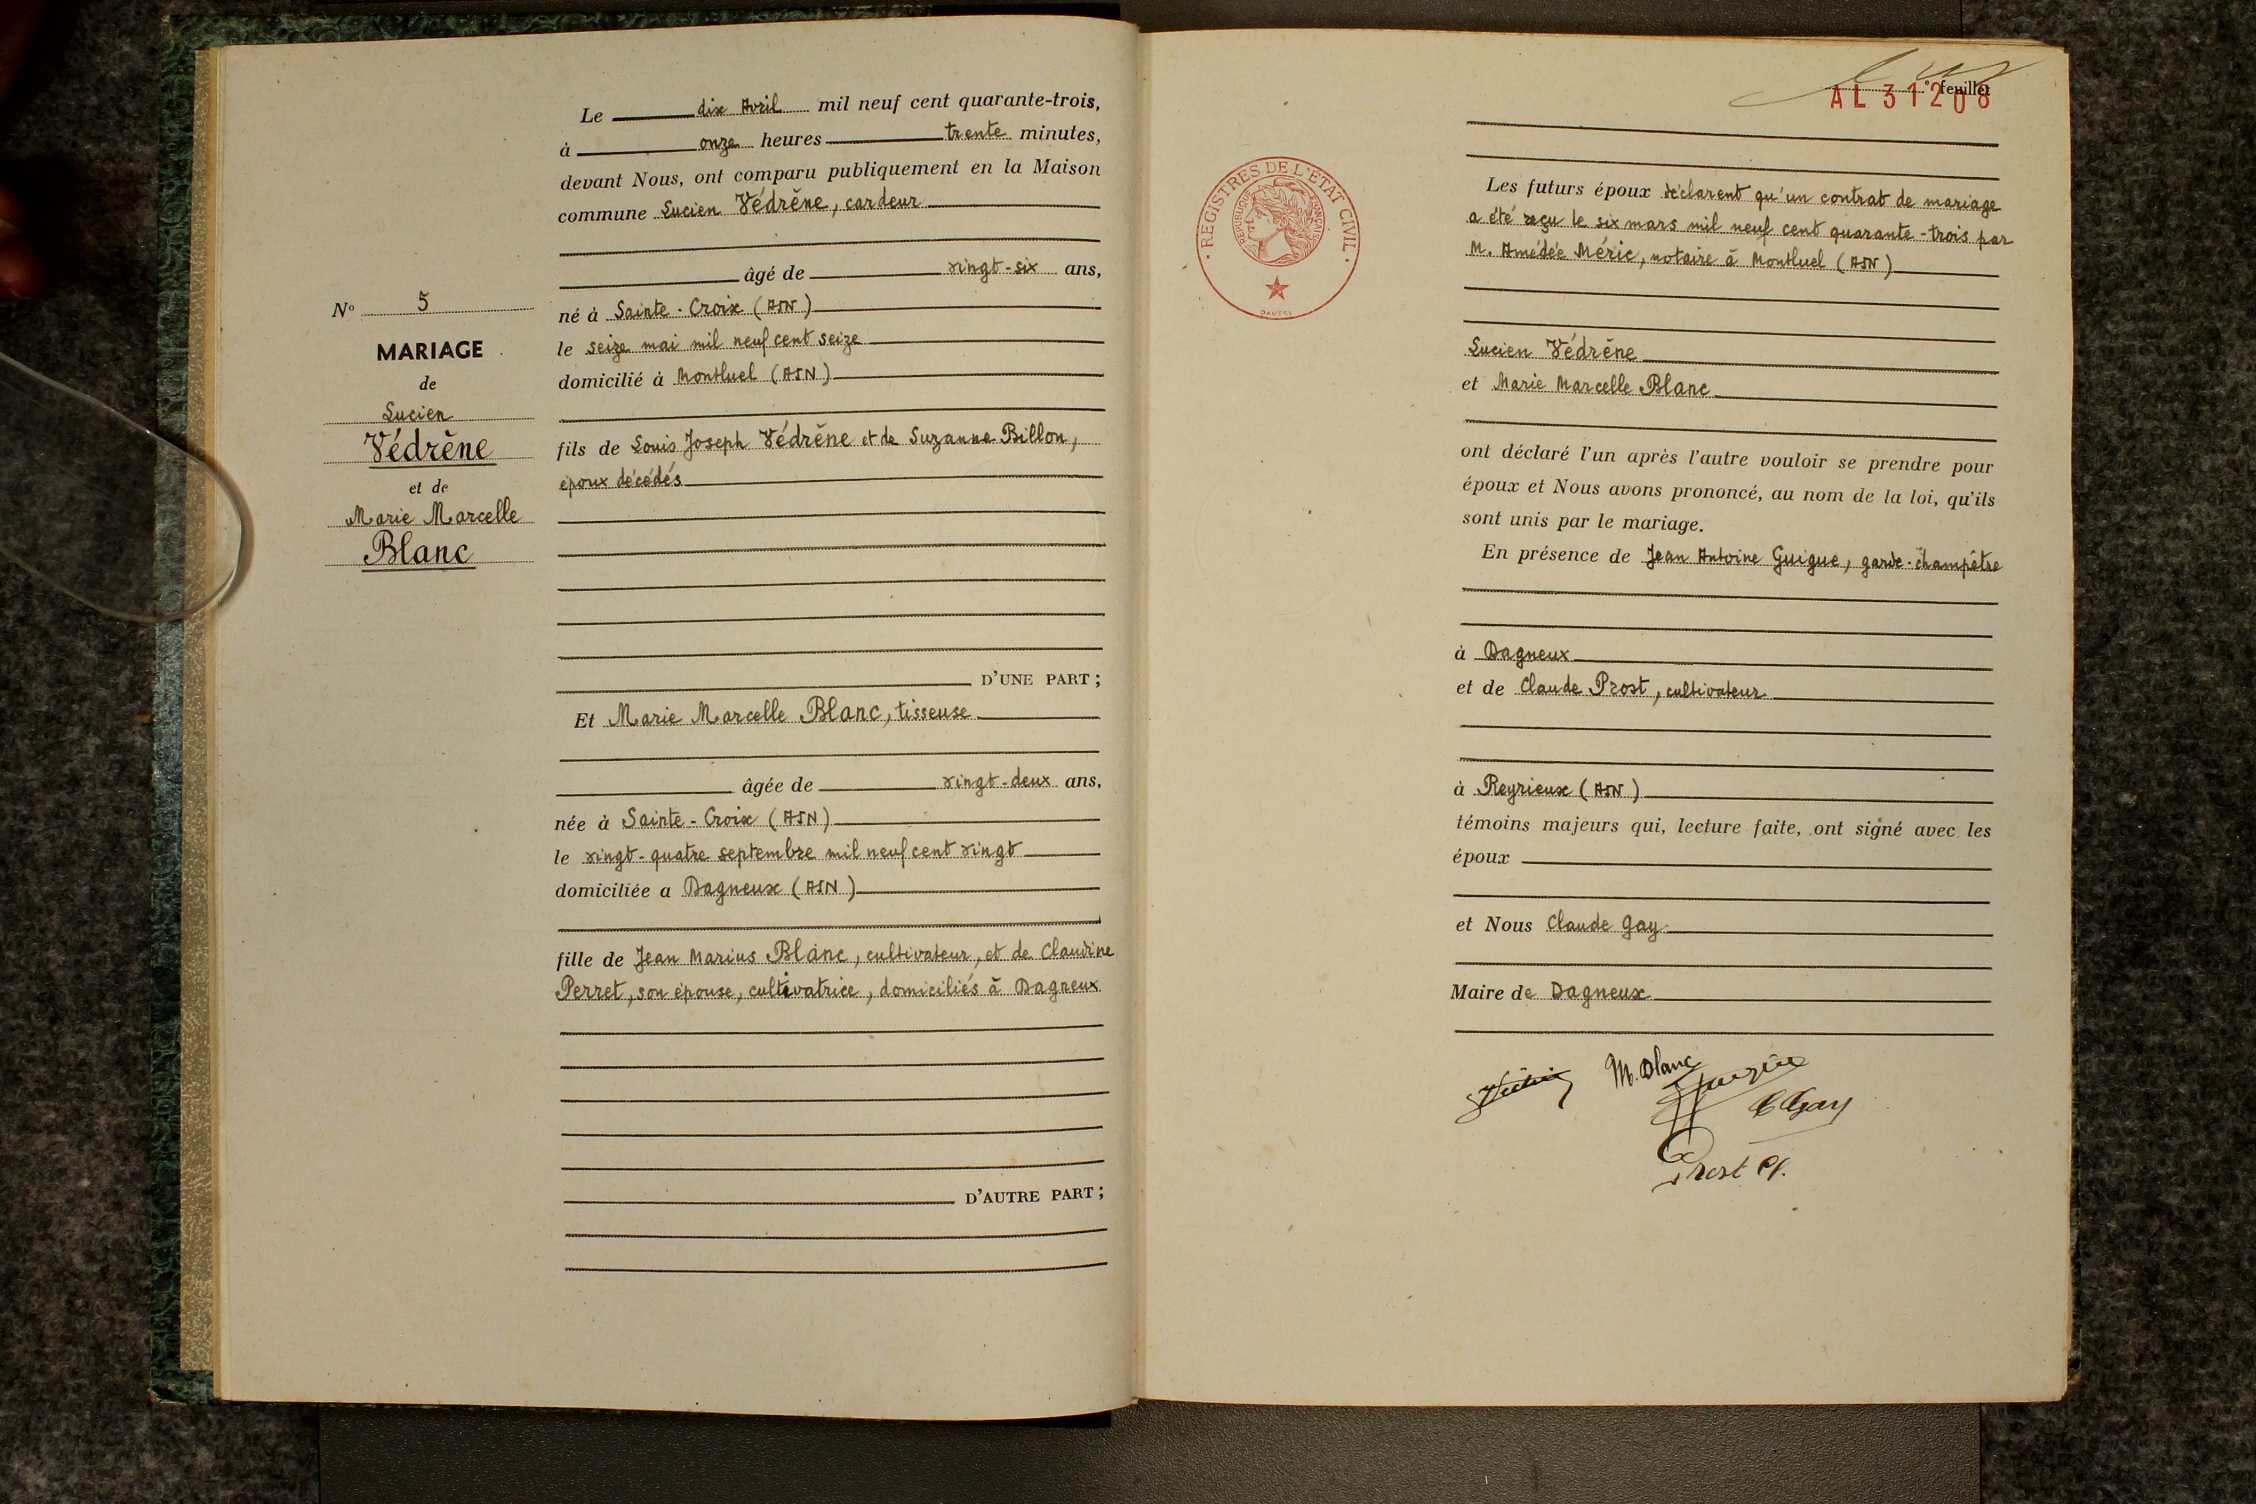 Le dix Avril mil neuf cent quarante-trois,
à onze heures trente minutes,
devant Nous, ont comparu publiquement en la Maison
commune Lucien Védrène, cardeur
âgé de vingt-six ans,
né à Sainte-Croix (AIN)
le seize mai mil neuf cent seize
domicilié à Montluel (AIN)
fils de Louis Joseph Védrène et de Suzanne Billon,
époux décédés
D'UNE PART ;
Et Marie Marcelle Blanc, tisseuse
âgée de vingt-deux ans,
née à Sainte-Croix (AIN)
le vingt-quatre septembre mil neuf cent vingt
domiciliée a Dagneux (AIN)
fille de Jean Marius Blanc, cultivateur, et de Claudine
Perret, son épouse, cultivatrice, domiciliés à Dagneux
D'AUTRE PART ;
Nº 5
MARIAGE
de
Lucien
Védrène
et de
Marie Marcelle
Blanc
° feuillet
AL 31208
REGISTRES DE L'ÉTAT CIVIL
RÉPUBLIQUE FRANÇAISE
Les futurs époux déclarent qu'un contrat de mariage
a été reçu le six mars mil neuf cent quarante-trois par
M. Amédée Méric, notaire à Montluel (AIN)
Lucien Védrène
et Marie Marcelle Blanc
ont déclaré l'un après l'autre vouloir se prendre pour
époux et Nous avons prononcé, au nom de la loi, qu'ils
sont unis par le mariage.
En présence de Jean Antoine Guigue, garde-champêtre
à Dagneux
et de Claude Prost, cultivateur
à Reyrieux (AIN)
témoins majeurs qui, lecture faite, ont signé avec les
époux
et Nous Claude Gay
Maire de Dagneux
M. Blanc
C Gay
Prost Cl.